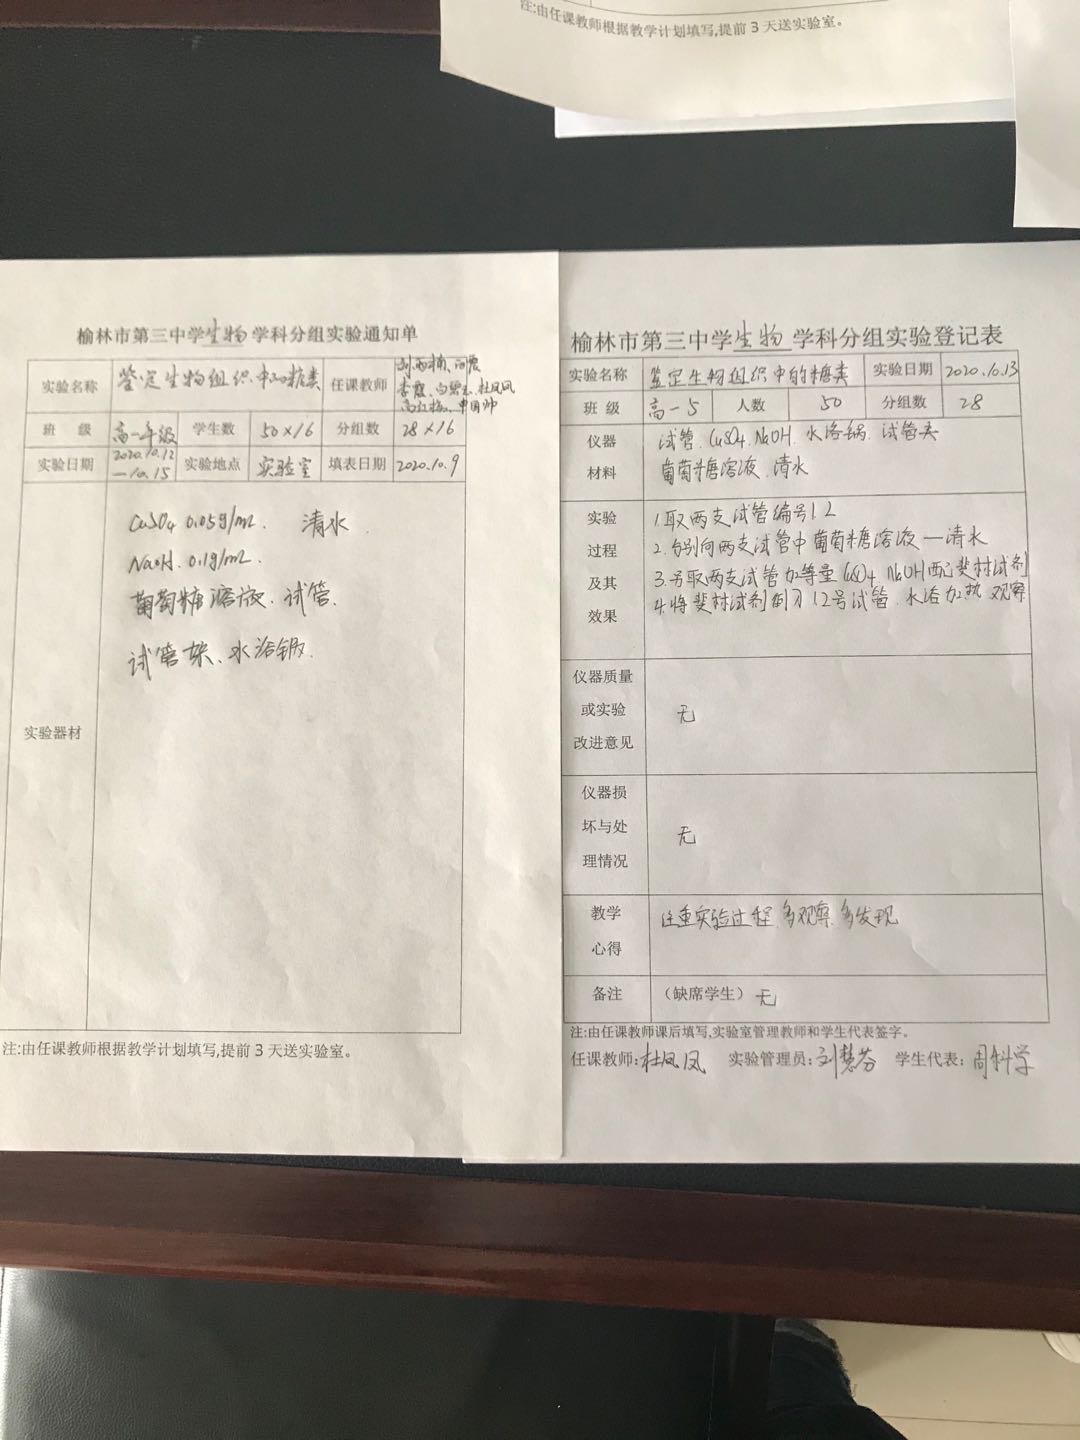 注:由任课教师根据教学计划填写,提前3天送实验室。
榆林市第三中学生物学科分组实验通知单
实验名称 鉴定生物组织中的糖类 任课教师
杜凤凤
班级 高一年级 学生数 50×16 分组数 28×16
实验日期 2020.10.12—10.15 实验地点 实验室 填表日期 2020.10.9
实验器材
CuSO4 0.05g/mL. 清水
NaOH. 0.1g/mL.
葡萄糖溶液. 试管.
试管架、水浴锅.
注:由任课教师根据教学计划填写,提前3天送实验室。
榆林市第三中学生物学科分组实验登记表
实验名称 鉴定生物组织中的糖类 实验日期 2020.10.13
班级 高一5 人数 50 分组数 28
仪器材料
试管. CuSO4. NaOH. 水浴锅. 试管夹
葡萄糖溶液. 清水
实验过程及其效果
1.取两支试管编号1.2
2.分别向两支试管中葡萄糖溶液一清水
3.另取两支试管加等量CuSO4 NaOH配斐林试剂
4.将斐林试剂倒入12号试管. 水浴加热 观察
仪器质量或实验改进意见 无
仪器损坏与处理情况 无
教学心得 注重实验过程 多观察 多发现
备注 (缺席学生) 无
注:由任课教师课后填写,实验室管理教师和学生代表签字。
任课教师:杜凤凤 实验管理员:刘慧芬 学生代表:周科学